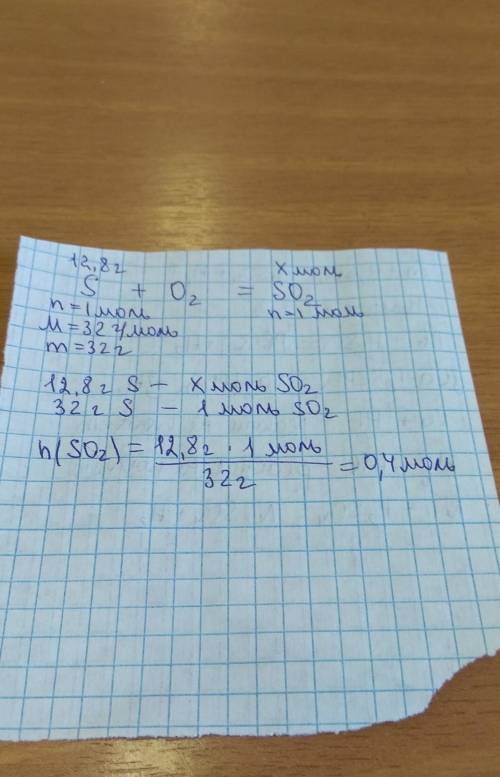 12,8г х моль
S + O₂ = SO₂
n=1моль n=1 моль
M=32 г/моль
m=32г
12,8г S — х моль SO₂
32г S — 1 моль SO₂
n(SO₂) = 12,8г · 1 моль / 32г = 0,4 моль